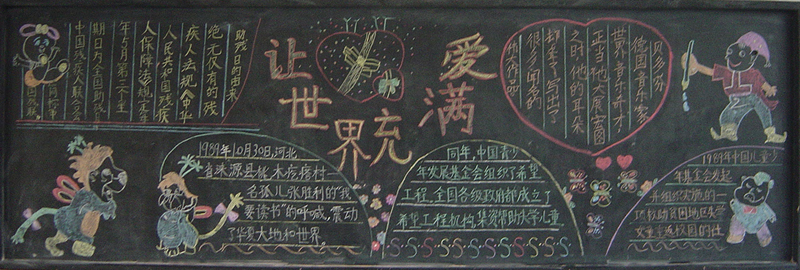 让世界充
爱满
助残日的由来
绝无仅有的残
疾人法规《中华
人民共和国残疾
人保障法规定每
年5月第三个星
期日为全国助残
中国残疾人联合会
贝多芬
德国音乐家
世界音乐奇才,
正当他大展宏图
之时,他的耳朵
却聋了,写出了
很多闻名的
伟大作品
1989年10月30日,河北
省涞源县桃木疙瘩村一
名孤儿张胜利的“我
要读书”的呼喊,震动
了华夏大地和世界。
同年,中国青少
年发展基金会组织了希望
工程,全国各级政府都成立了
希望工程机构,集资帮助失学儿童
1989年中国儿童少
年基金会发起
并组织实施的一
项救助贫困地区失学
女童重返校园的社